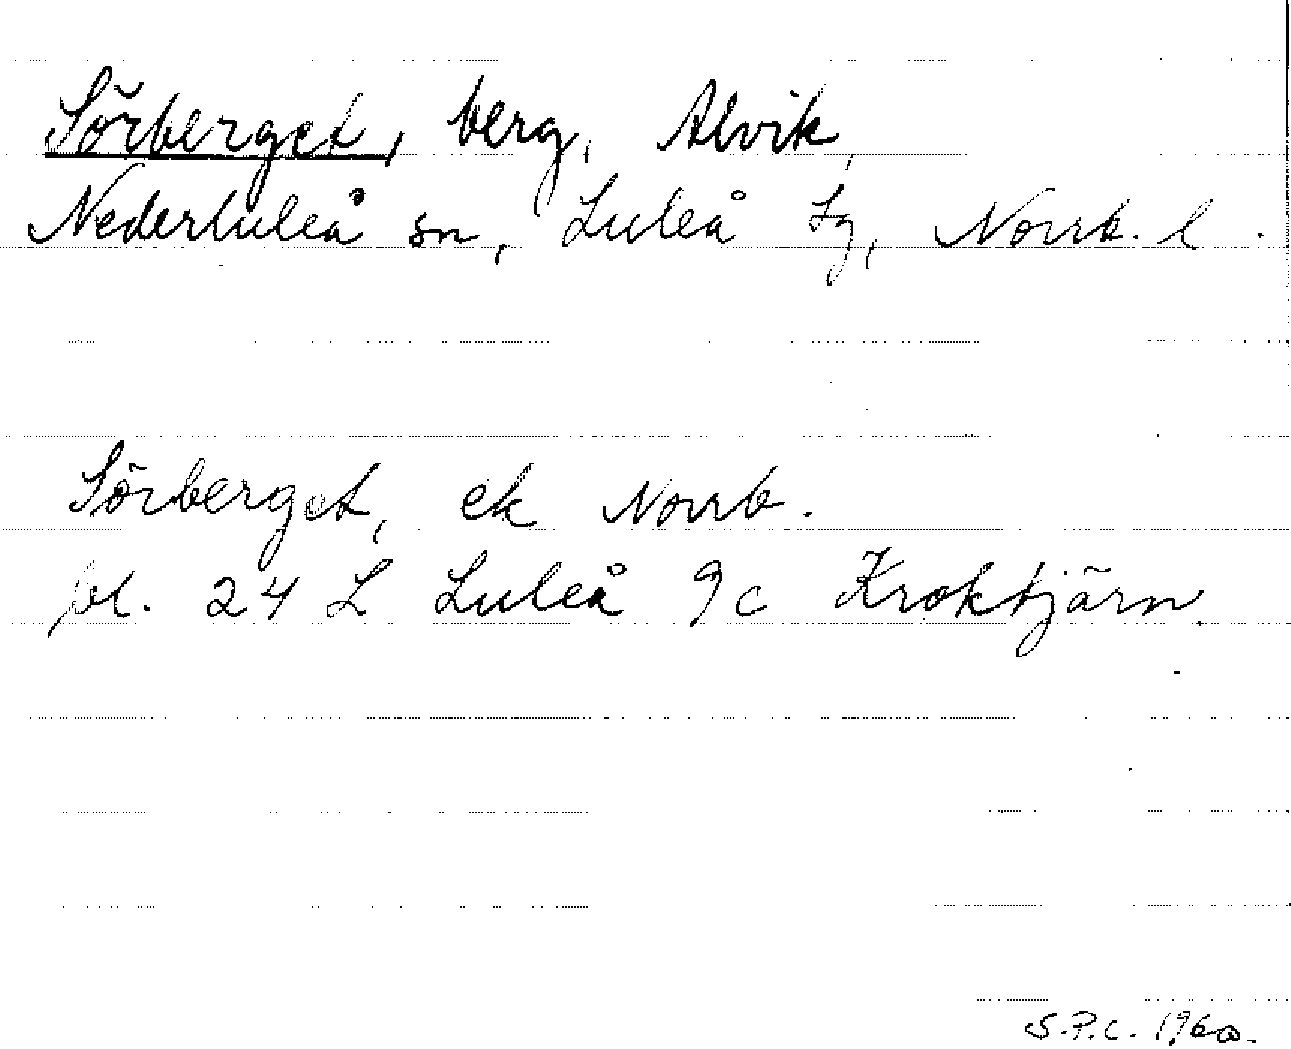 Sörberget, berg, Alvik,
Nederluleå sn, Luleå tg, Norrb. l.
Sörberget, ek Norrb.
bl. 24 L Luleå 9c Kroktjärn.
S.P.C. 1960.